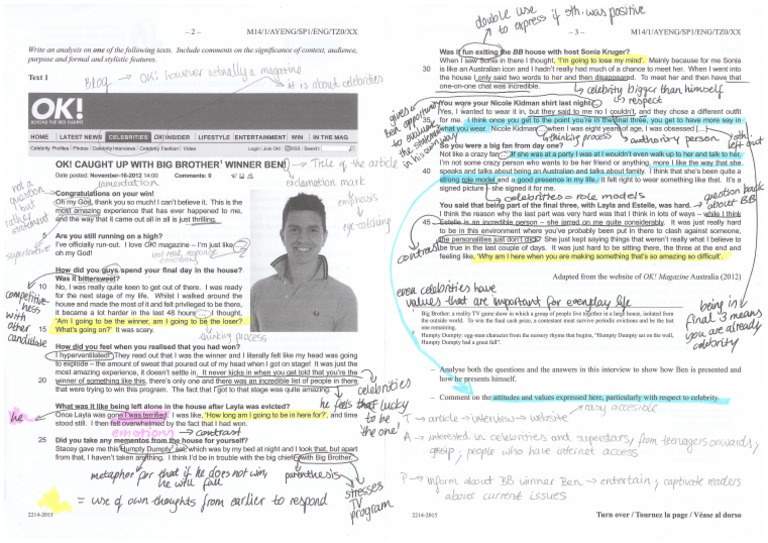 – 2 –
M14/1/AYENG/SP1/ENG/TZ0/XX
Write an analysis on one of the following texts. Include comments on the significance of context, audience,
purpose and formal and stylistic features.
Text 1
Blog → OK! however actually a magazine
it is about celebrities
OK!
HOME LATEST NEWS CELEBRITIES OK! INSIDER LIFESTYLE ENTERTAINMENT WIN IN THE MAG
Celebrity Profiles Photos Celebrity Interviews Celebrity Fashion Video
Search
OK! CAUGHT UP WITH BIG BROTHER¹ WINNER BEN!
→ Title of the article
Date posted: November-16-2012 14:00 Comments: 0
exclamation mark
emphasis
eye-catching
not a question but rather statement
Congratulations on your win!
Oh my God, thank you so much! I can't believe it. This is the
most amazing experience that has ever happened to me,
and the way that it came out all in all is just thrilling.
superlative
5 Are you still running on a high?
I've officially run-out. I love OK! magazine – I'm just like
oh my God!
How did you guys spend your final day in the house?
Was it bittersweet?
10 No, I was really quite keen to get out of there. I was ready
for the next stage of my life. Whilst I walked around the
house and made the most of it and felt privileged to be there,
it became a lot harder in the last 48 hours ... I thought,
'Am I going to be the winner, am I going to be the loser?
15 What's going on?' It was scary.
→ thinking process
competitiveness with other candidate
How did you feel when you realised that you had won?
I hyperventilated! They read out that I was the winner and I literally felt like my head was going
to explode – the amount of sweat that poured out of my head when I got on stage! It was just the
most amazing experience, it doesn't settle in. It never kicks in when you get told that you're the
20 winner of something like this, there's only one and there was an incredible list of people in there
that were trying to win this program. The fact that I got to that stage was quite amazing.
→ celebrities
he feels that lucky to be the one!
What was it like being left alone in the house after Layla was evicted?
he
Once Layla was gone I was terrified. I was like, 'How long am I going to be in here for?', and time
stood still. I then felt overwhelmed by the fact that I had won.
emotions → contrast
25 Did you take any mementos from the house for yourself?
Stacey gave me this Humpty Dumpty² set which was by my bed at night and I took that, but apart
from that, I haven't taken anything. I think I'd be in trouble with the big chiefs with Big Brother.
metaphor for that if he does not win he will fall
parenthesis
stresses TV program
= use of own thoughts from earlier to respond
2214-2015
double use
→ to express if sth. was positive
– 3 –
M14/1/AYENG/SP1/ENG/TZ0/XX
Was it fun exiting the BB house with host Sonia Kruger?
When I saw Sonia in there I thought, 'I'm going to lose my mind'. Mainly because for me Sonia
30 is like an Australian icon and I hadn't really had much of a chance to meet her. When I went into
the house I only said two words to her and then disappeared. To meet her and then have that
one-on-one chat was incredible.
→ celebrity bigger than himself
→ respect
You wore your Nicole Kidman shirt last night.
Yes, I wanted to wear it in, but they said to me no I couldn't, and they chose a different outfit
35 for me. I think once you get to the point you're in the final three, you get to have more say in
what you wear. Nicole Kidman, when I was eight years of age, I was obsessed [...]
→ thinking process
authority person
sth. left out
So you were a big fan from day one?
Not like a crazy fan. If she was at a party I was at I wouldn't even walk up to her and talk to her.
I'm not some crazy person who wants to be her friend or anything, more I like the way that she
40 speaks and talks about being an Australian and talks about family. I think that she's been quite a
strong role model and a good presence in my life. It felt right to wear something like that. It's a
signed picture – she signed it for me.
→ celebrities = role models
question back about BB
You said that being part of the final three, with Layla and Estelle, was hard.
I think the reason why the last part was very hard was that I think in lots of ways – while I think
45 Estelle is an incredible person – she jarred on me quite considerably. It was just really hard
to be in this environment where you've probably been put in there to clash against someone,
the personalities just don't click. She just kept saying things that weren't really what I believe to
be true in the last couple of days. It was just hard to be sitting there, the three at the end and
feeling like, 'Why am I here when you are making something that's so amazing so difficult'.
contrast
Adapted from the website of OK! Magazine Australia (2012)
even celebrities have
values that are important for everyday life
being in final 3 means you are already celebrity
¹ Big Brother: a reality TV game show in which a group of people live together in a large house, isolated
from the outside world. To win the final cash prize, a contestant must survive periodic evictions and be the last
one remaining.
² Humpty Dumpty: egg-man character from the nursery rhyme that begins, "Humpty Dumpty sat on the wall,
Humpty Dumpty had a great fall".
– Analyse both the questions and the answers in this interview to show how Ben is presented and
how he presents himself.
– Comment on the attitudes and values expressed here, particularly with respect to celebrity.
→ easy accessible
T → article → interview → website
A → interested in celebrities and superstars, from teenagers onwards,
gossip, people who have internet access
P → inform about BB winner Ben → entertain, captivate readers
about current issues
2214-2015
Turn over / Tournez la page / Véase al dorso